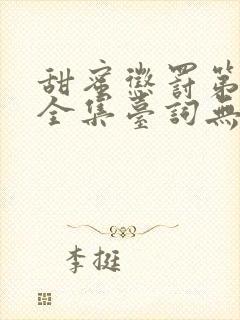 甜蜜懲罰第
全集臺詞無
李挺